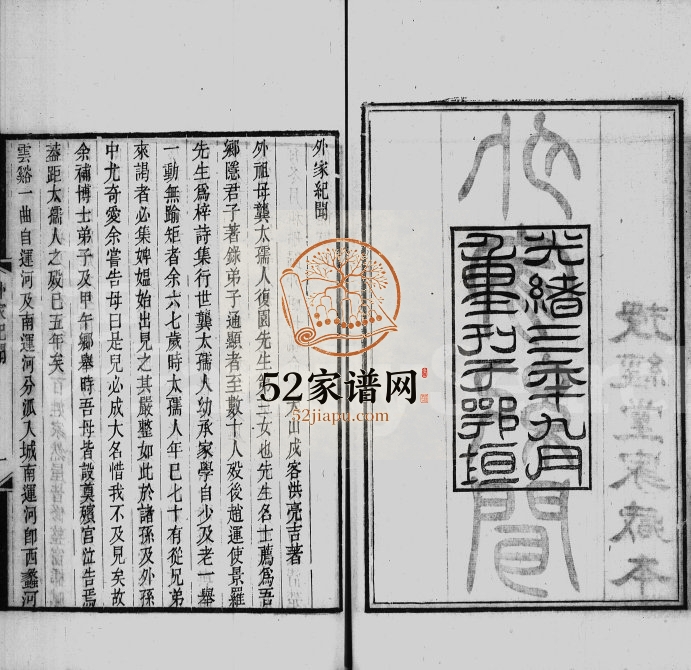 授經堂家藏本
外家紀聞
光緒三年九月
重刊于鄂垣
外家紀聞
山戍客洪亮吉著
外祖母龔太孺人復園先生第三女也先生名士薦爲吾
鄉隱君子著錄弟子通顯者至數十人歿後趙運使景羅
先生爲梓詩集行世龔太孺人幼承家學自少及老一舉
一動無踰矩者余六七歲時太孺人年已七十有從兄弟
來謁者必集婢媼始出見之其嚴整如此於諸孫及外孫
中尤奇愛余嘗告母曰是兒必成大名惜我不及見矣故
余補博士弟子及甲午鄉舉時吾母皆設奠殯宮泣告焉
蓋距太孺人之歿已五年矣
雲谿一曲自運河及南運河分派入城南運河卽西蠡河
外家紀聞
一
52家谱网
52jiapu.com